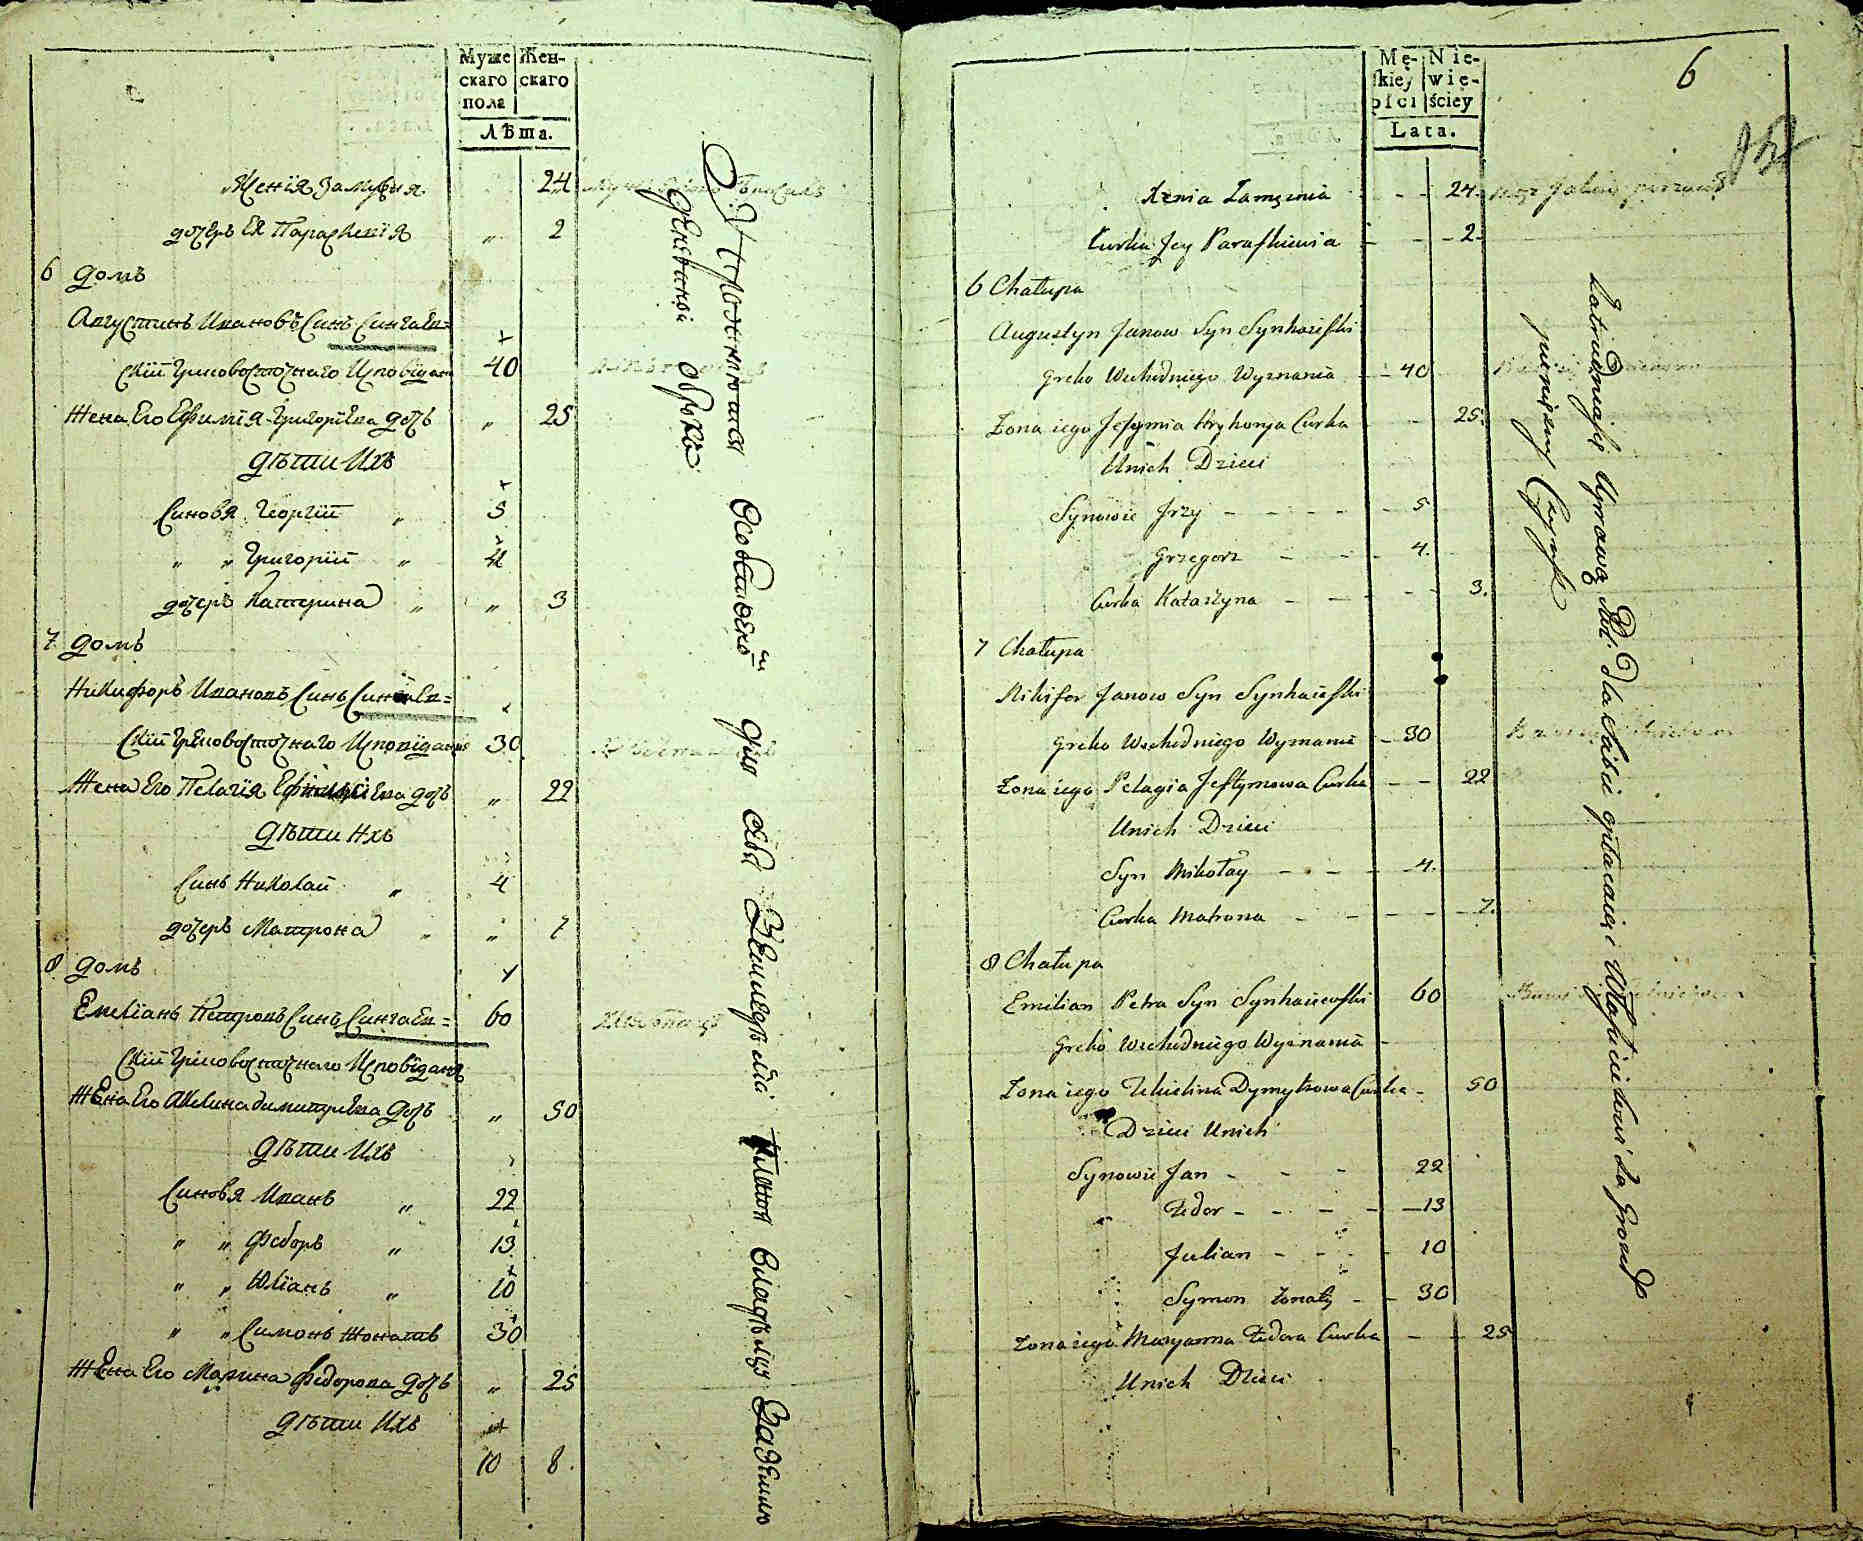 Муже
скаго
пола
Жен-
скаго
Лѣта.
Ксенія Замужня 24
дочерь Ея Параскевія " 2
6 домъ
Августинъ Ивановъ Синъ Сингаев=
скій Грековосточнаго Исповідан 40
Жена Его Ефимія Григоріева дочь " 25
дѣти Ихъ
Синовя Георгій " 5
" " Григорій " 4
дочерь Катерина " " 3
7 домъ
Никифоръ Ивановъ Синъ Сингаев=
скій Грековосточнаго Исповіданія 30
Жена Его Пелагія Ева дочь " 22
дѣти Ихъ
Синъ Николай " 4
дочерь Матрона " " 7
8 домъ
Емеліанъ Петровъ Синъ Сингаев= 60
скій Грековосточнаго Исповіданя
Жена Его Акелина Димитріева дочь " 50
дѣти Ихъ
Синовя Иванъ " 22
" " Федоръ " 13
" " Юліанъ " 10
" " Симонъ Жонатъ 30
Жена Его Марина Федорова дочь " 25
дѣти Ихъ
10 8
для себя Земледѣлія владѣльцу За Землю
Mę-
skiey
płci
Nie-
wie-
ściey
Lata.
6
Xenia Zamężnia - - 24
Curka Jey Paraskiewia - - 2
6 Chałupa
Augustyn Janow Syn Synhaiefski
Greko Wschodniego Wyznania - 40
Żona iego Jefymia Hryhorya Curka 25
Unich Dzieci
Synowie Jrzy - - - - 5
Grzegorz - - - 4.
Curka Katarzyna - - - - - 3.
7 Chałupa
Nikifor Janow Syn Synhaiefski
Greko Wschodniego Wyznania - 30
Żona iego Pelagia Jeftymowa Curka - - 22
Unich Dzieci
Syn Mikołay - - - 4.
Curka Matrona - - - - - 7.
8 Chałupa
Emilian Petra Syn Synhaiewski 60
Greko Wschodniego Wyznania -
Żona iego Dymytrowa Curka - 50
Dzieci Unich
Synowie Jan - - - 22
Fedor - - - - - 13
Julian - - - - 10
Symon Żonaty - - 30
Żona iego Maryanna Fedora Curka - - 25
Unich Dzieci
Zatrudniaią Uprawą Rol: Dla Siebie opłacaiąc Właścicielowi Za Grunt
pieniężny Czynsz